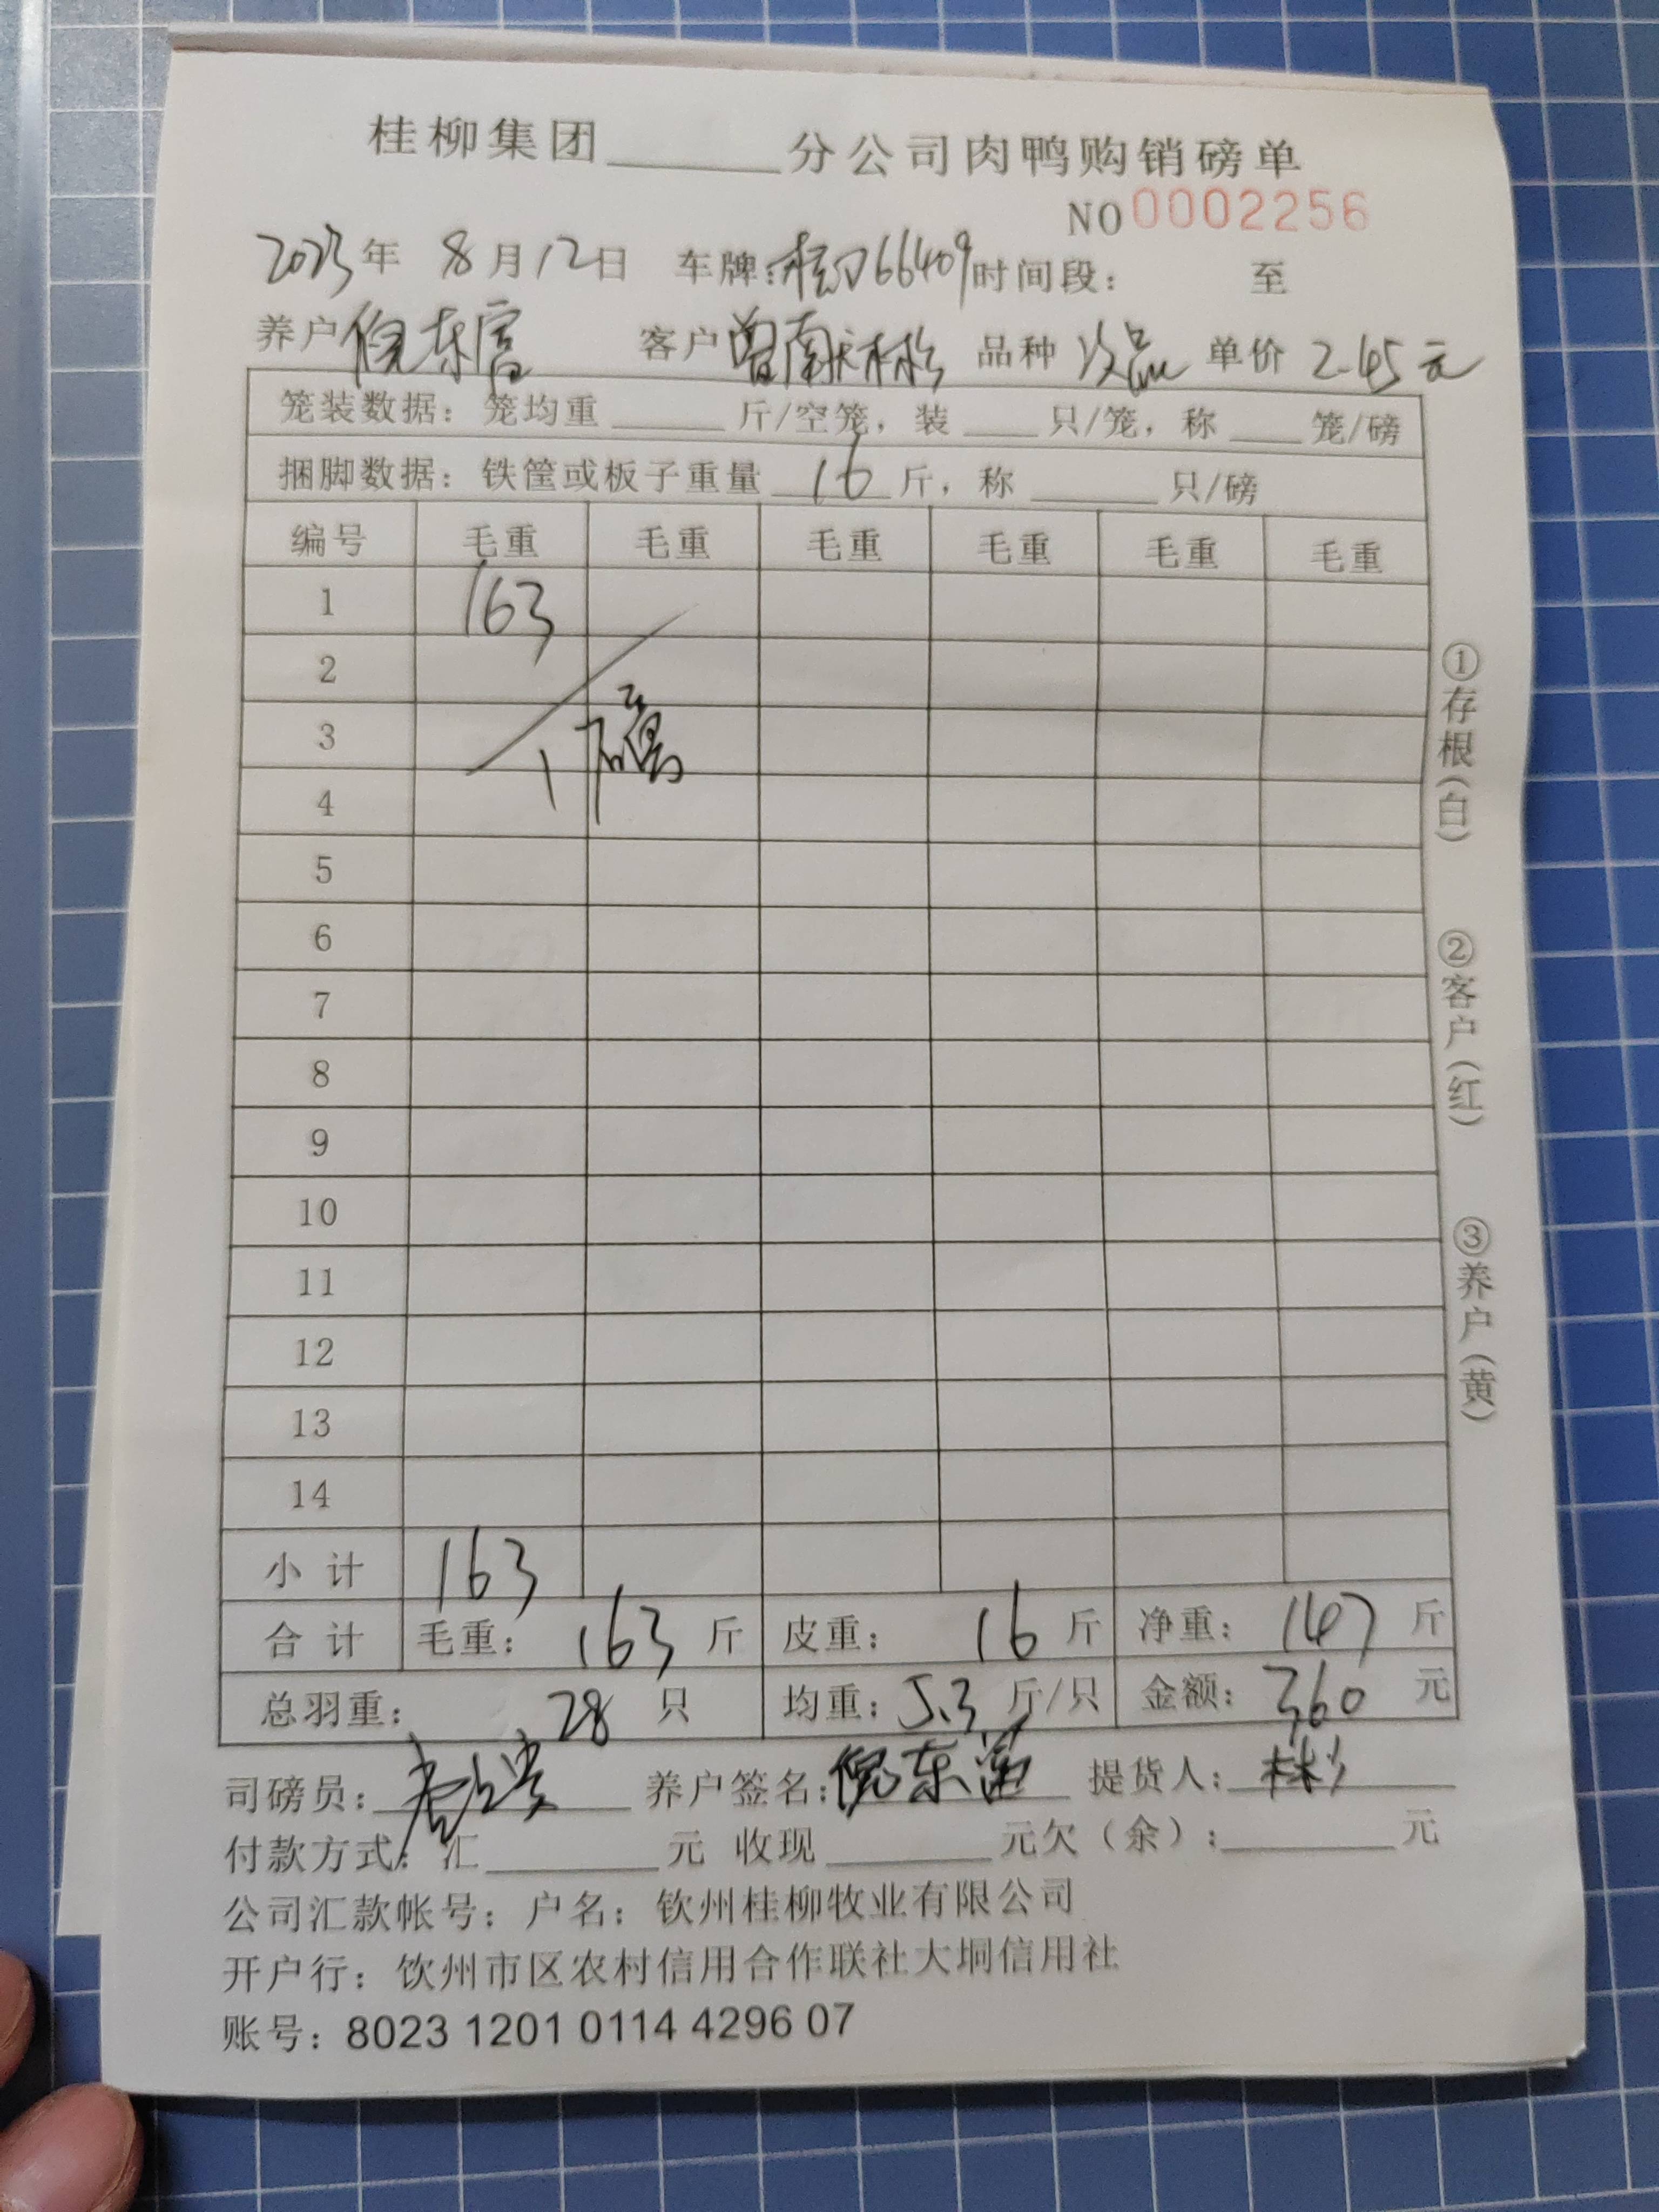 桂柳集团______分公司肉鸭购销磅单
NO 0002256
2023年 8月12日 车牌:桂 66409 时间段: 至
养户 倪东富 客户 曾南 彬 品种 次品 单价 2.45元
笼装数据:笼均重____斤/空笼,装___只/笼,称___笼/磅
捆脚数据:铁筐或板子重量 16 斤,称____只/磅
编号 毛重 毛重 毛重 毛重 毛重 毛重
1 163
2
3 1磅
4
5
6
7
8
9
10
11
12
13
14
小计 163
合计 毛重: 163 斤 皮重: 16 斤 净重: 147 斤
总羽重: 28 只 均重: 5.3 斤/只 金额: 360 元
司磅员: 养户签名:倪东富 提货人:彬
付款方式:汇______元 收现______元欠(余):______元
公司汇款帐号:户名:钦州桂柳牧业有限公司
开户行:钦州市区农村信用合作联社大垌信用社
账号:8023 1201 0114 4296 07
①存根(白) ②客户(红) ③养户(黄)